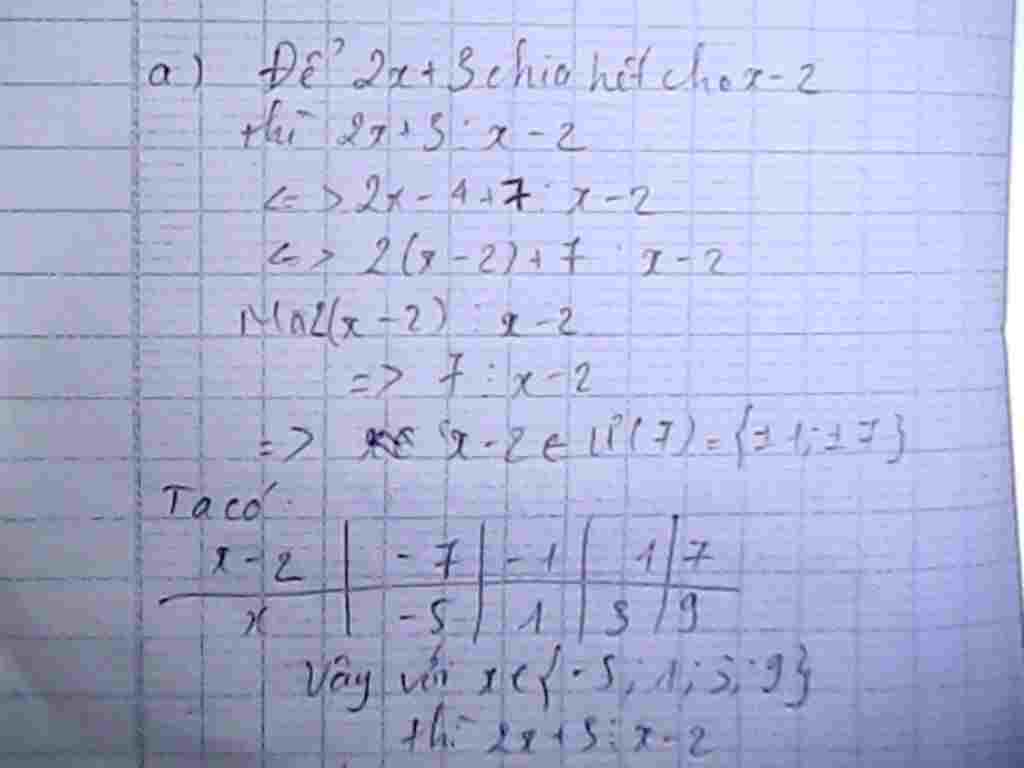 a) Để 2x+3 chia hết cho x-2
thì 2x+3 ⋮ x-2
<=> 2x-4+7 ⋮ x-2
<=> 2(x-2)+7 ⋮ x-2
Mà 2(x-2) ⋮ x-2
=> 7 ⋮ x-2
=> x-2 ∈ Ư(7) = {±1; ±7}
Ta có
x-2 | -7 | -1 | 1 | 7
x | -5 | 1 | 3 | 9
Vậy với x ∈ {-5; 1; 3; 9}
thì 2x+3 ⋮ x-2